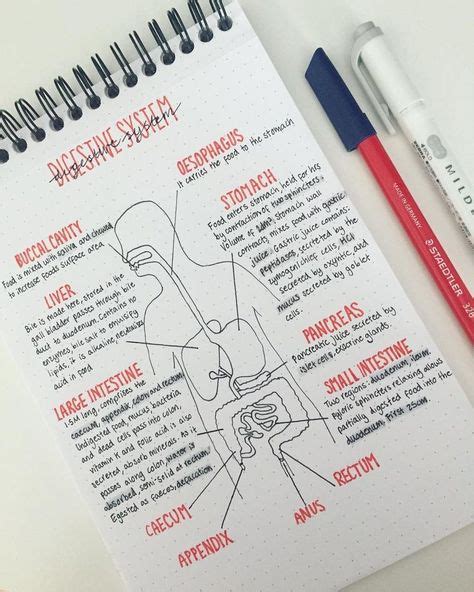 DIGESTIVE SYSTEM
digestive system
OESOPHAGUS
It carries the food to the stomach
BUCCAL CAVITY
Food is mixed with saliva and chewed
to increase foods surface area
STOMACH
Food enters stomach held for hrs
by contraction of two sphincters
volume of stomach wall
contracts mixes food with gastric
juice. Gastric juice contains:
peptidases, secreted by the
zymogen/chief cells, HCl
secreted by oxyntic and
mucus secreted by goblet
cells.
LIVER
Bile is made here, stored in the
gall bladder passes through bile
duct to duodenum. Contains no
enzymes, bile salt to emulsify
lipids, it is alkaline neutralize
acid in food
PANCREAS
Pancreatic juice secreted by
islet cells, exocrine glands.
LARGE INTESTINE
1.5M long, comprises the
caecum, appendix, colon and rectum.
Undigested food, mucus, bacteria
and dead cells pass into colon.
vitamin K and folic acid is also
secreted, absorb minerals. As it
passes along colon, water is
absorbed. semi-solid at rectum
Egested as faeces, defacation.
SMALL INTESTINE
Two regions: duodenum, ileum.
Pyloric sphincters relaxing allows
partially digested food into the
duodenum, first 25cm.
CAECUM
APPENDIX
ANUS
RECTUM
MADE IN GERMANY
STAEDTLER
326
MILD